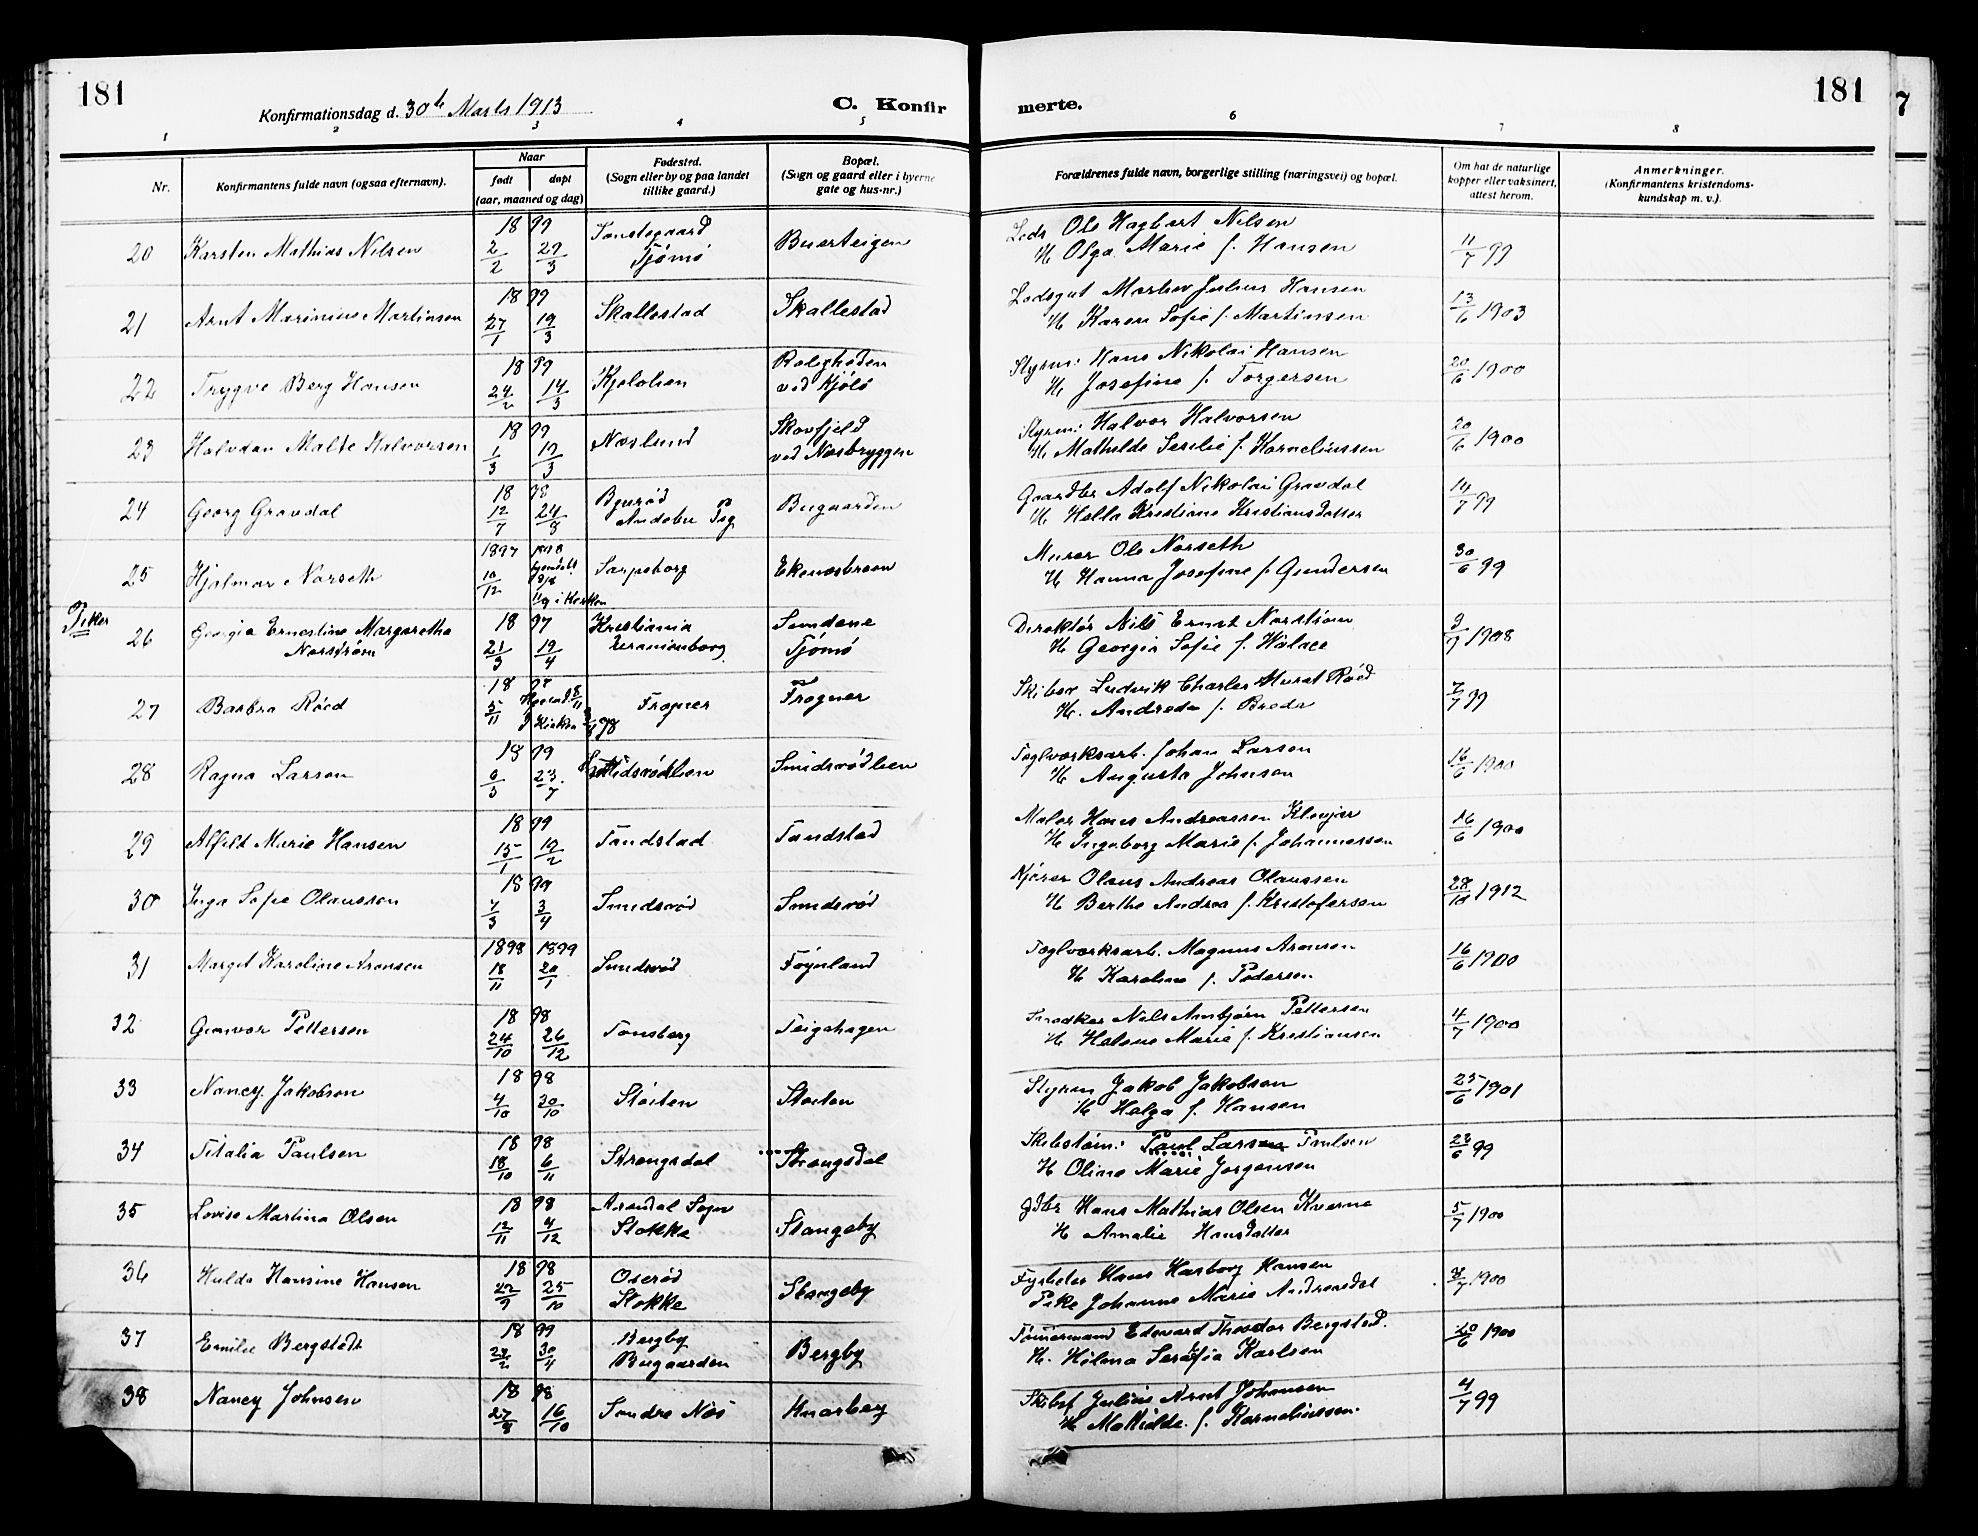 181
Konfirmationsdag d. 30te Marts 1913
C. Konfir
merte.
181
7
1 2 3 4 5 6 7 8
Nr.
Konfirmantens fulde navn (ogsaa efternavn).
Naar
født døpt
(aar, maaned og dag)
Fødested.
(Sogn eller by og paa landet
tillike gaard.)
Bopæl.
(Sogn og gaard eller i byerne
gate og hus-nr.)
Forældrenes fulde navn, borgerlige stilling (næringsvei) og bopæl.
Om hat de naturlige
kopper eller vaksinert,
attest herom.
Anmerkninger.
(Konfirmantens kristendoms-
kundskap m. v.).
20 Karsten Mathias Nilsen 18 99 2/2 27/3 Tjømø Buerteigen
Lods Ole Hagbart Nilsen
H. Olga Marie f. Hansen 11/7 99
21 Arnt Marinius Martinsen 18 99 27/1 19/3 Skallestad Skallestad
Lodsgut Julius Hansen
H. Karen Sofie f. Martinsen 13/6 1903
22 Trygve Berg Hansen 18 99 24/2 14/3 Kjølolien Roligheden
ved Kjølø
Styrm: Hans Nikolai Hansen
H. Josefine f. Torgersen 20/6 1900
23 Halvdan Malte Halvorsen 18 99 1/3 19/3 Næslund Skovfjeld
ved Næsbryggen
Styrm: Halvor Halvorsen
H. Mathilde Serilie f. Korneliussen 20/6 1900
24 Georg Gravdal 18 98 12/7 24/8 Andebu Bugaarden
Gaardbr Adolf Nikolai Gravdal
H. Hella Kristiane Kristiansdatter 14/7 99
25 Hjalmar Norseth 1897 10/12 i Kirken Sarpsborg Ekenæsbraaten
Murer Ole Norseth
H. Hanna Josefine f. Gundersen 30/6 99
Piker
26 Georgia Ernestine Margaretha
Norstrøm 18 97 21/3 19/4 Kristiania
Uranienborg Sundene
Tjømø
Direktør Nils Ernst Norstrøm
H. Georgia Sofie f. Walace 9/9 1908
27 Barbra Röed 18 98 5/11 Kirken Frogner Frogner
Ludvik Charles Röed
H. Andreda f. Brodr 7/7 99
28 Ragna Larsen 18 99 23/7 Smidsrødlien Smidsrødlien
Teglverksarb. Johan Larsen
H. Augusta Johnsen 16/6 1900
29 Alfild Marie Hansen 18 99 15/1 19/2 Tandstad Tandstad
Maler Hans Andreassen
H. Ingeborg Marie f. Johannessen 16/6 1900
30 Inga Sofie Olaussen 18 99 7/3 3/4 Smidsrød Smidsrød
Kjører Olaus Andreas Olaussen
H. Berthe Andrea f. Kristofersen 28/10 1912
31 Margit Karoline Aronsen 1898 1899 18/11 20/1 Smidsrød Føynland
Teglverksarb. Magnus Aronsen
H. Karoline f. Pedersen 16/6 1900
32 Gunvor Pettersen 18 98 24/10 26/12 Tønsberg Teigehagen
Nils Arnbjørn Pettersen
H. Helene Marie f. Kristiansen 4/7 1900
33 Nancy Jakobsen 18 98 4/10 30/10 Støiten Støiten
Styrm Jakob Jakobsen
H. Helga f. Hansen 25/6 1901
34 Titalia Paulsen 18 98 18/10 6/11 Strengsdal Strengsdal
Skibstøm: Paul Larsen Paulsen
H Oline Marie Jørgensen 28/6 99
35 Lovise Martina Olsen 18 98 12/11 4/12 Arendal Sogn
Stokke Stangeby
Gdbr Hans Mathias Olsen Kverne
H. Amalie Hansdatter 5/7 1900
36 Hulda Hansine Hansen 18 98 22/9 25/10 Oserød
Stokke Stangeby
Fyrbøter Hans Harborg Hansen
Pike Johanne Marie Andreasdat 1900
37 Emilie Bergstedt 18 99 30/4 Bergby
Bugaarden Bergby
Tømmermand Edevard Theodor Bergsted.
H. Hilma Serafia Karlsen 20/6 1900
38 Nancy Johnsen 18 98 16/10 Søndre Nes Knarberg
Julius Arnt Johansen
H. Mathilde f. Korneliussen 4/7 99